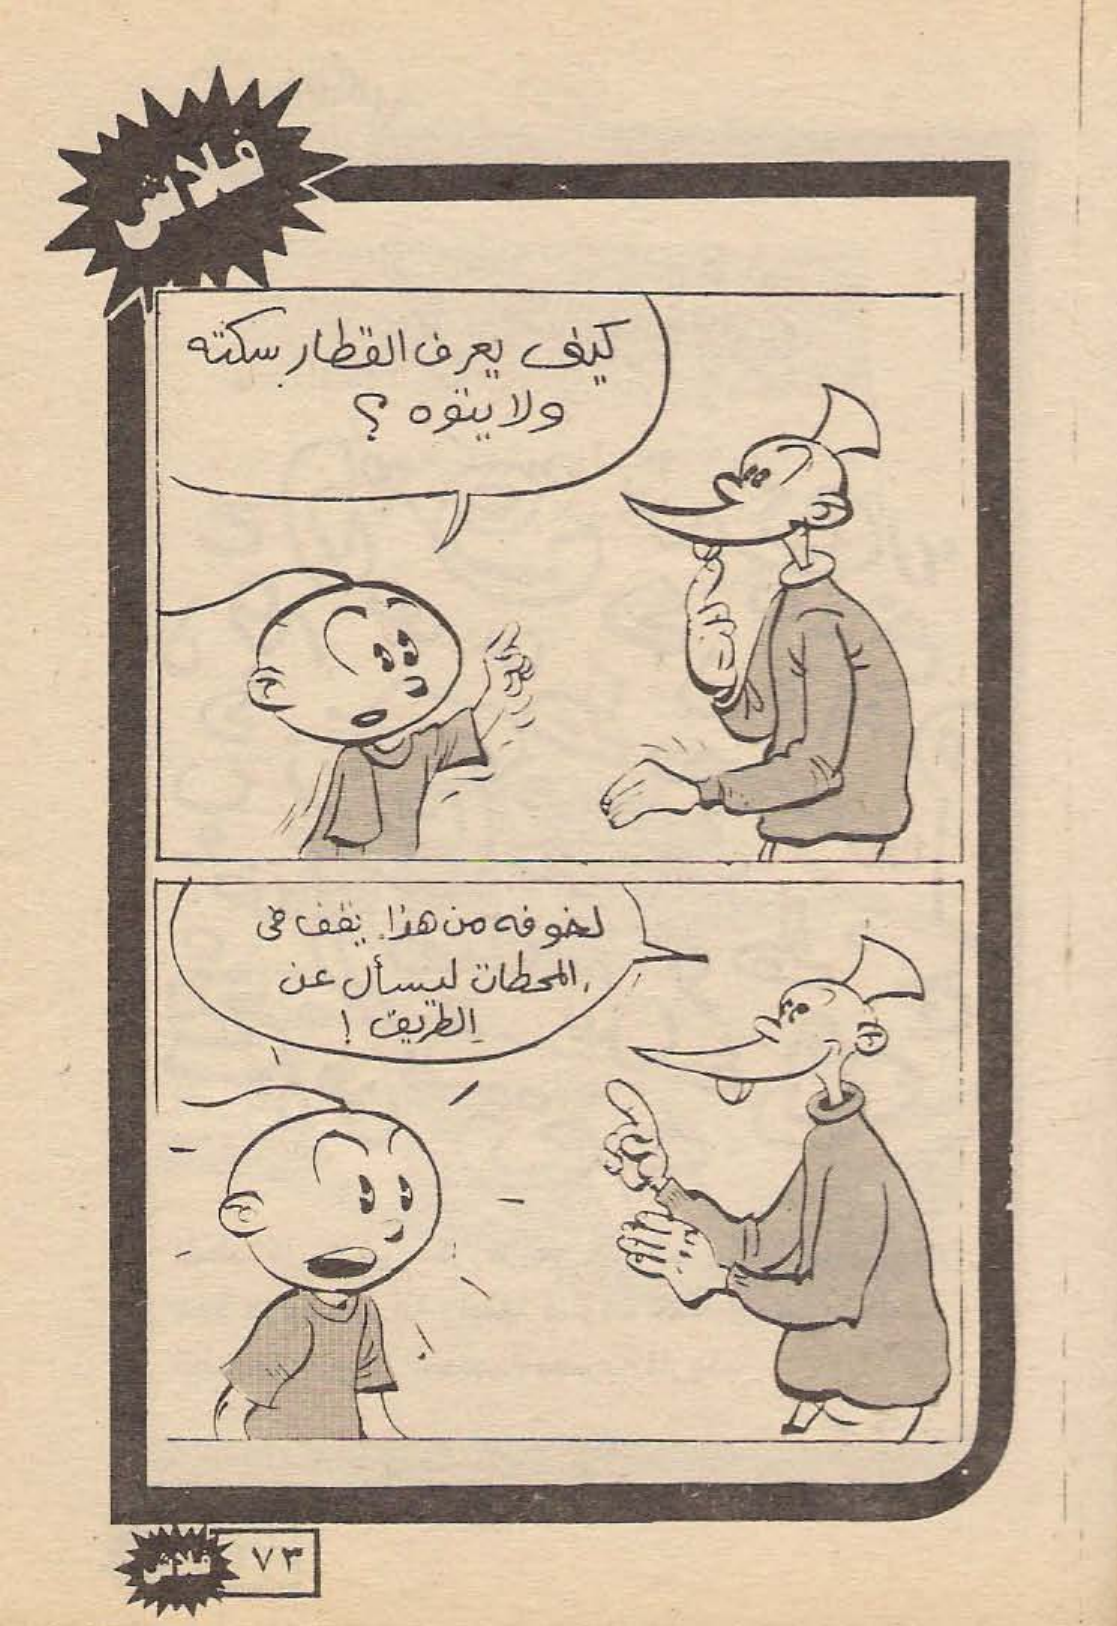 فلاش
كيف يعرف القطار سكته
ولا يتوه ؟
لخوفه من هذا. يقف فى
المحطات ليسأل عن
الطريق !
٧٣
فلاش